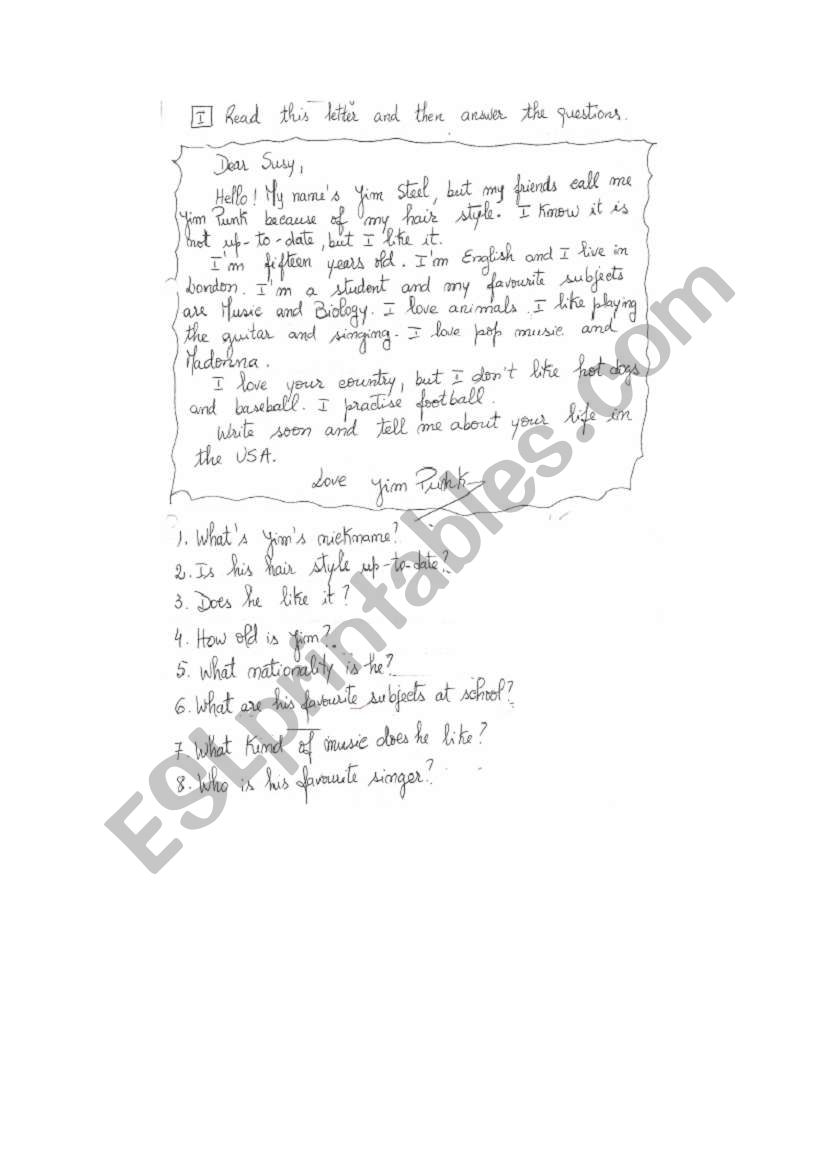 I Read this letter and then answer the questions.
Dear Susy,
Hello! My name's Jim Steel, but my friends call me
Jim Punk because of my hair style. I know it is
not up-to-date, but I like it.
I'm fifteen years old. I'm English and I live in
London. I'm a student and my favourite subjects
are Music and Biology. I love animals. I like playing
the guitar and singing. I love pop music and
Madonna.
I love your country, but I don't like hot dogs
and baseball. I practise football.
Write soon and tell me about your life in
the USA.
Love Jim Punk
1. What's Jim's nickname?
2. Is his hair style up-to-date?
3. Does he like it?
4. How old is Jim?
5. What nationality is he?
6. What are his favourite subjects at school?
7. What kind of music does he like?
8. Who is his favourite singer?
ESLprintables.com